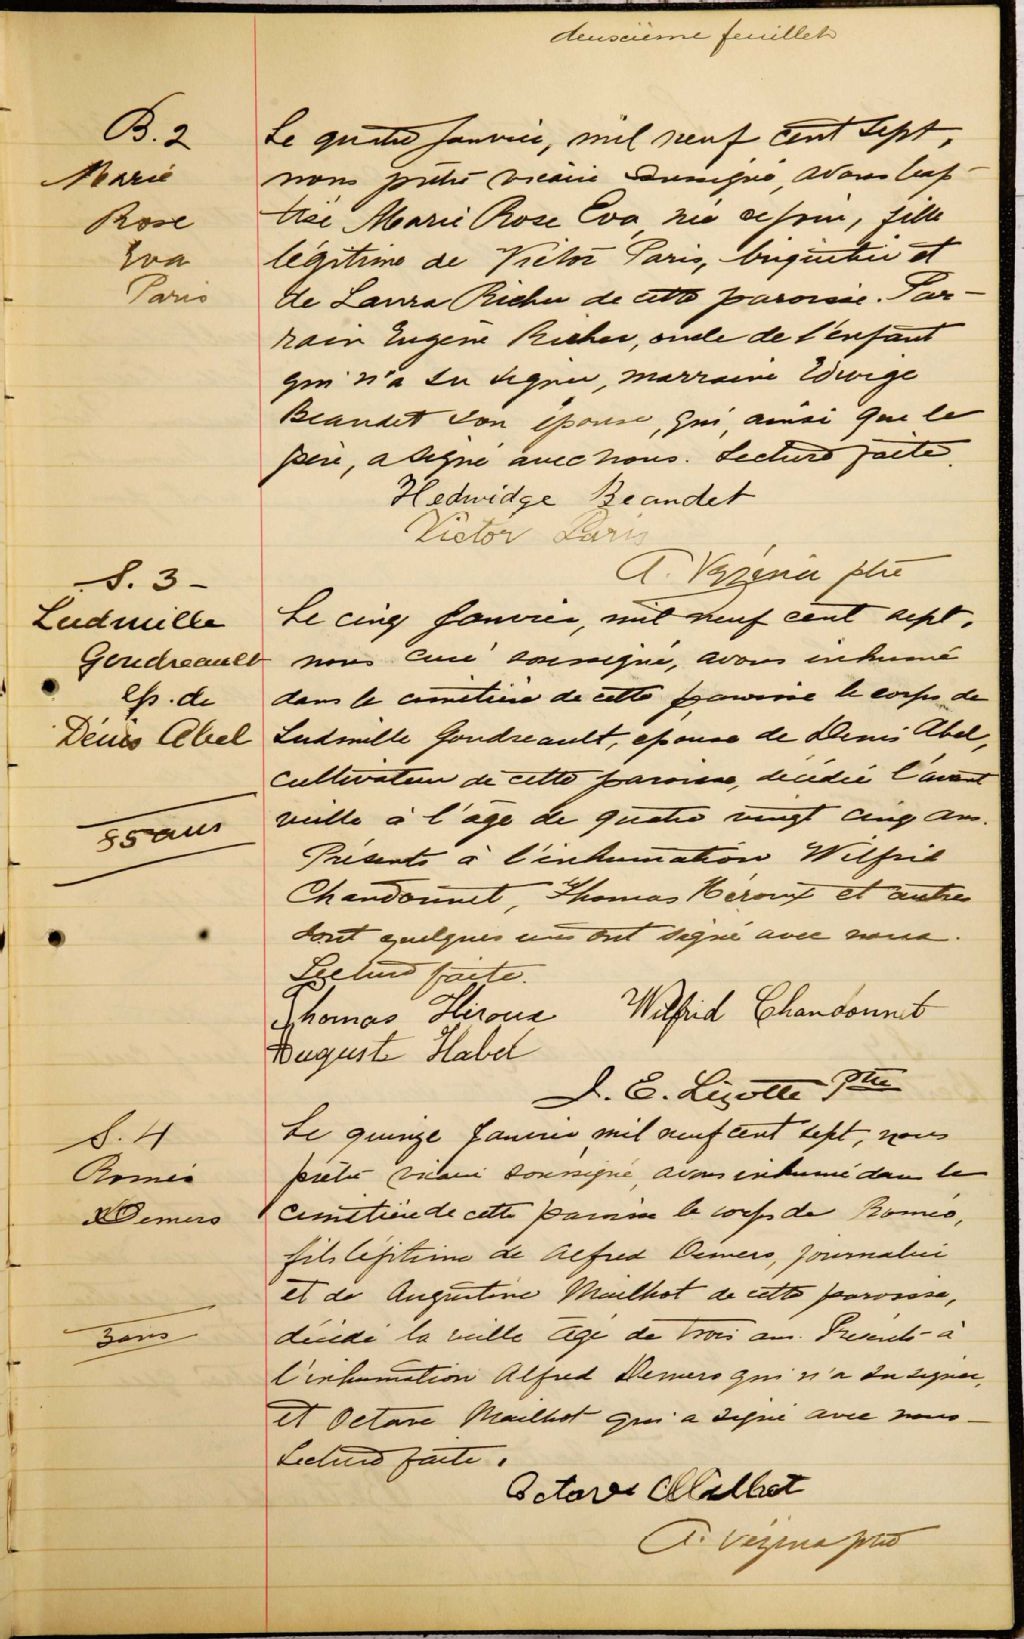 deuxième feuillet
B. 2
Marie
Rose
Eva
Paris
Le quatre janvier, mil neuf cent sept,
nous prêtre vicaire soussigné, avons bap-
tisé Marie Rose Eva, née ce jour, fille
légitime de Victor Paris, briquetier et
de Laura Richer de cette paroisse. Par-
rain Eugène Richer, oncle de l'enfant
qui n'a su signer, marraine Edwige
Beaudet son épouse, qui, ainsi que le
père, a signé avec nous. Lecture faite.
Hedwidge Beaudet
Victor Paris
A. Vézina ptre
S. 3 -
Ludmille
Goudreault
ép. de
Dénis Abel
85 ans
Le cinq janvier, mil neuf cent sept,
nous curé soussigné, avons inhumé
dans le cimetière de cette paroisse le corps de
Ludmille Goudreault, épouse de Denis Abel,
cultivateur de cette paroisse, décédée l'avant
veille à l'âge de quatre vingt cinq ans.
Présents à l'inhumation Wilfrid
Chandonnet, Thomas Héroux et autres
dont quelques uns ont signé avec nous.
Lecture faite.
Thomas Hiroux Wilfrid Chandonnet
Auguste Habel
J. E. Lizotte ptre
S. 4
Roméo
Demers
3 ans
Le quinze janvier mil neuf cent sept, nous
prêtre vicaire soussigné, avons inhumé dans le
cimetière de cette paroisse le corps de Roméo,
fils légitime de Alfred Demers, journalier
et de Augustine Mailhot de cette paroisse,
décédé la veille âgé de trois ans. Présents à
l'inhumation Alfred Demers qui n'a su signer,
et Octave Mailhot qui a signé avec nous -
Lecture faite.
Octave Mailhot
A. Vézina ptre